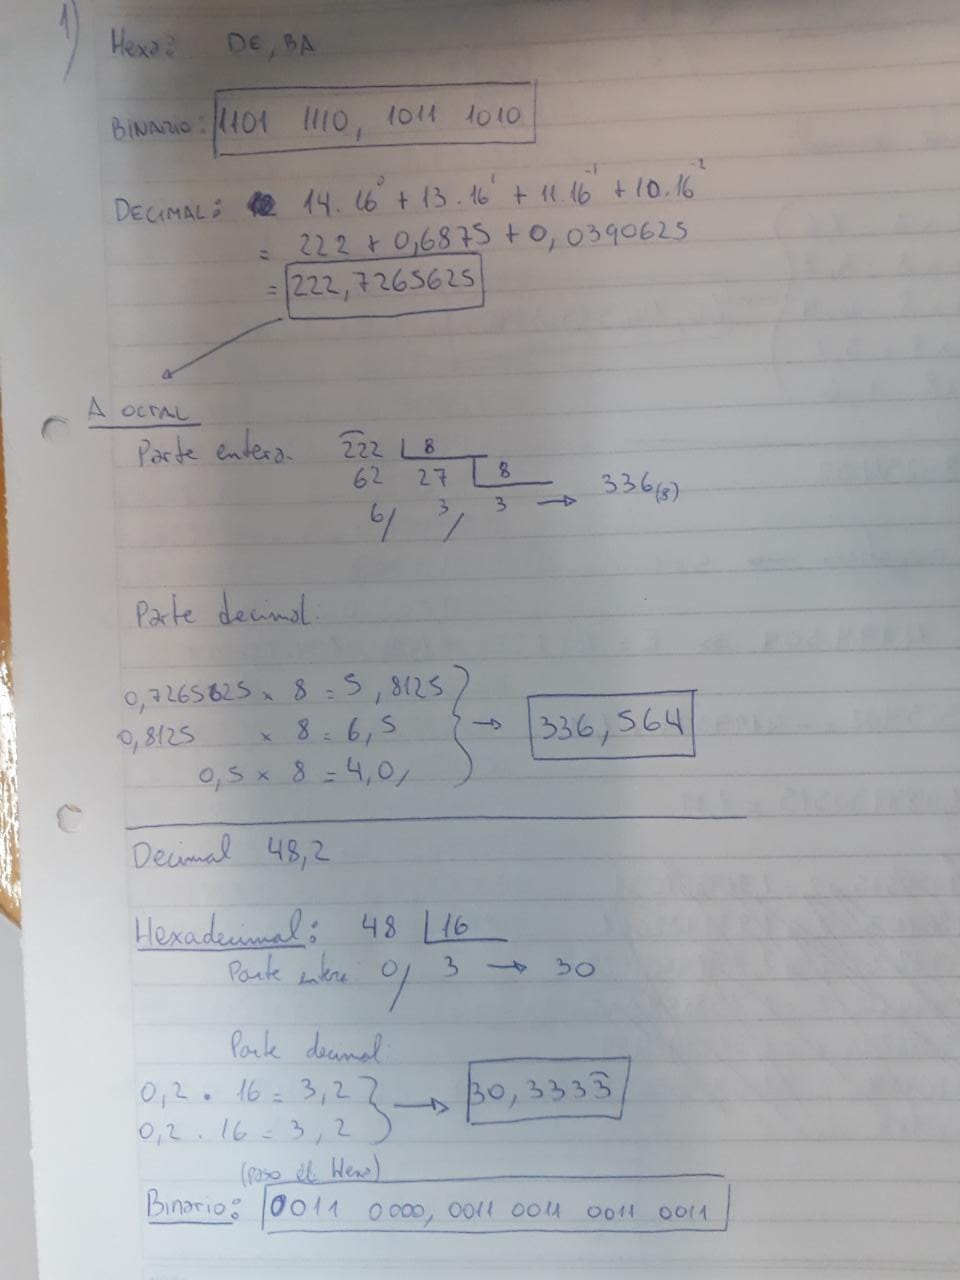 1)
Hexa: DE,BA
BINARIO: 1101 1110, 1011 1010
DECIMAL: 14.16⁰ + 13.16¹ + 11.16⁻¹ + 10.16⁻²
= 222 + 0,6875 + 0,0390625
= 222,7265625
A OCTAL
Parte entera. 222 8
62 27 8
6/ 3/ 3 → 336(8)
Parte decimal:
0,7265625 x 8 = 5,8125
0,8125 x 8 = 6,5
0,5 x 8 = 4,0/
→ 336,564
Decimal 48,2
Hexadecimal: 48 16
Parte entera: 0/ 3 → 30
Parte decimal:
0,2 . 16 = 3,2
0,2 . 16 = 3,2
→ 30,3333̅
(paso el Hexa)
Binario: 0011 0000, 0011 0011 0011 0011